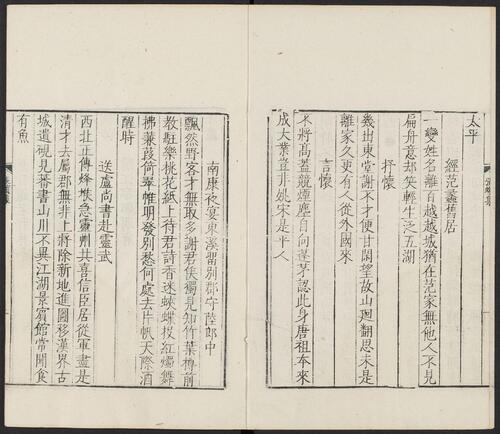 太平
經范蠡舊居
一變姓名離百越越城猶在范家無他人不見
扁舟意却笑輕生泛五湖
抒懷
幾出東堂謝不才便甘閑望故山迴翻思未是
離家久更有人從外國來
言懷
不將高蓋競煙塵自向蓬茅認此身唐祖本來
成大業豈非姚宋是平人
南康夜宴東溪留別郡守陸郎中
飄然野客才無取多謝君侯獨見知竹葉樽前
教駐樂桃花紙上待君詩香迷蛺蝶投紅燭舞
拂蒹葭倚翠帷明發別愁何處去片帆天際酒
醒時
送盧向書赴靈武
西北正傳烽堠急靈州共喜信臣居從軍盡是
清才去屬郡無非上將除新地進圖移漢界古
城遺硯見番書山川不異江湖景賓館常聞食
有魚